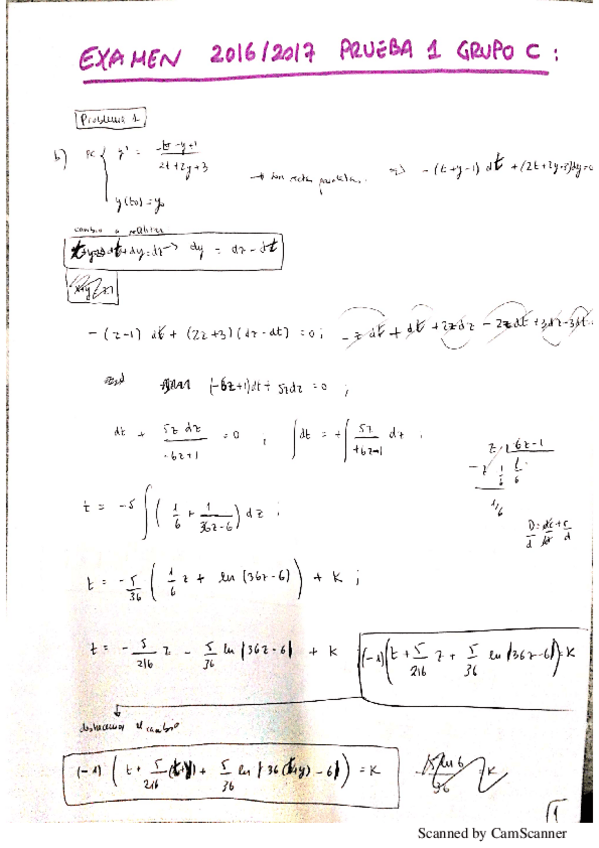 EXAMEN 2016/2017 PRUEBA 1 GRUPO C :
Problema 1
b) PC { y' = -t-y+1 / 2t+2y+3
→ son rectas paralelas. => -(t+y-1) dt + (2t+2y+3)dy=0
y(t0)=y0
cambio a realizar
dy = dz - dt
-(z-1) dt + (2z+3)(dz-dt) = 0 ; -z dt + dt + 2z dz - 2z dt + 3dz - 3dt
(-6z+1)dt + 5z dz = 0 ;
dt + 5z dz / -6z+1 = 0 , ∫dt = +∫ 5z / +6z-1 dz .
z | 6z-1
1/6
t = -5 ∫ ( 1/6 + 1 / 36z-6 ) dz ;
t = -5/36 ( 1/6 z + ln (36z-6) ) + K ;
t = -5/216 z - 5/36 ln |36z-6| + K
(-1)(t + 5/216 z + 5/36 ln |36z-6|) = K
deshacemos el cambio
(-1) ( t + 5/216 (t+y) + 5/36 ln | 36(t+y) - 6| ) = K
1
Scanned by CamScanner